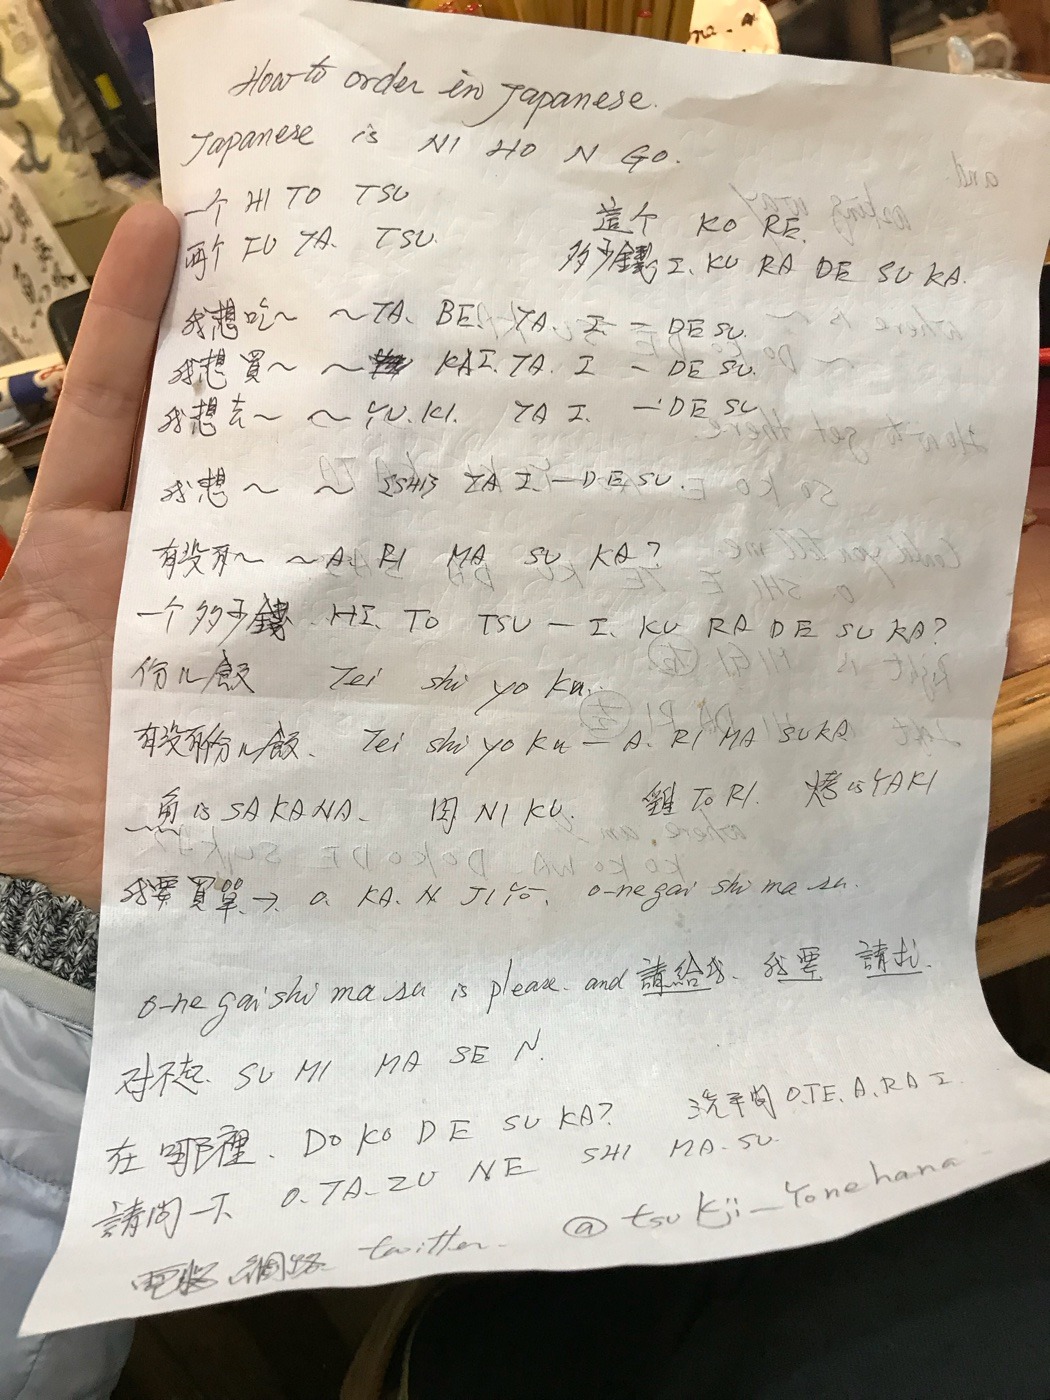 How to order in Japanese.
Japanese is NI HO N GO.
一个 HI TO TSU
這个 KO RE.
两个 FU TA. TSU.
多少錢 I. KU RA DE SU KA.
我想吃～ ～TA. BE. TA. I － DE SU.
我想買～ ～ KAI. TA. I － DE SU.
我想去～ ～YU. KI. TA I. － DE SU
我想～ ～ SHI TA I － DE SU.
有没有～ ～A RI MA SU KA?
一个多少錢 HI. TO TSU － I. KU RA DE SU KA?
份儿飯 Tei shi yo ku.
有没有份儿飯. Tei shi yo ku － A. RI MA SU KA
魚 is SA KA NA. 肉 NI KU. 雞 TO RI. 烤 is YAKI
我要買單 → O. KA. N JI o-ne gai shi ma su.
o-ne gai shi ma su is please. and 請給我. 我要 請
对不起. SU MI MA SE N.
在哪裡. DO KO DE SU KA? 洗手间 O. TE. A. RA I.
請問一下 O. TA. ZU NE SHI MA. SU.
電腦 網路 twitter. @tsukji_Yonehana